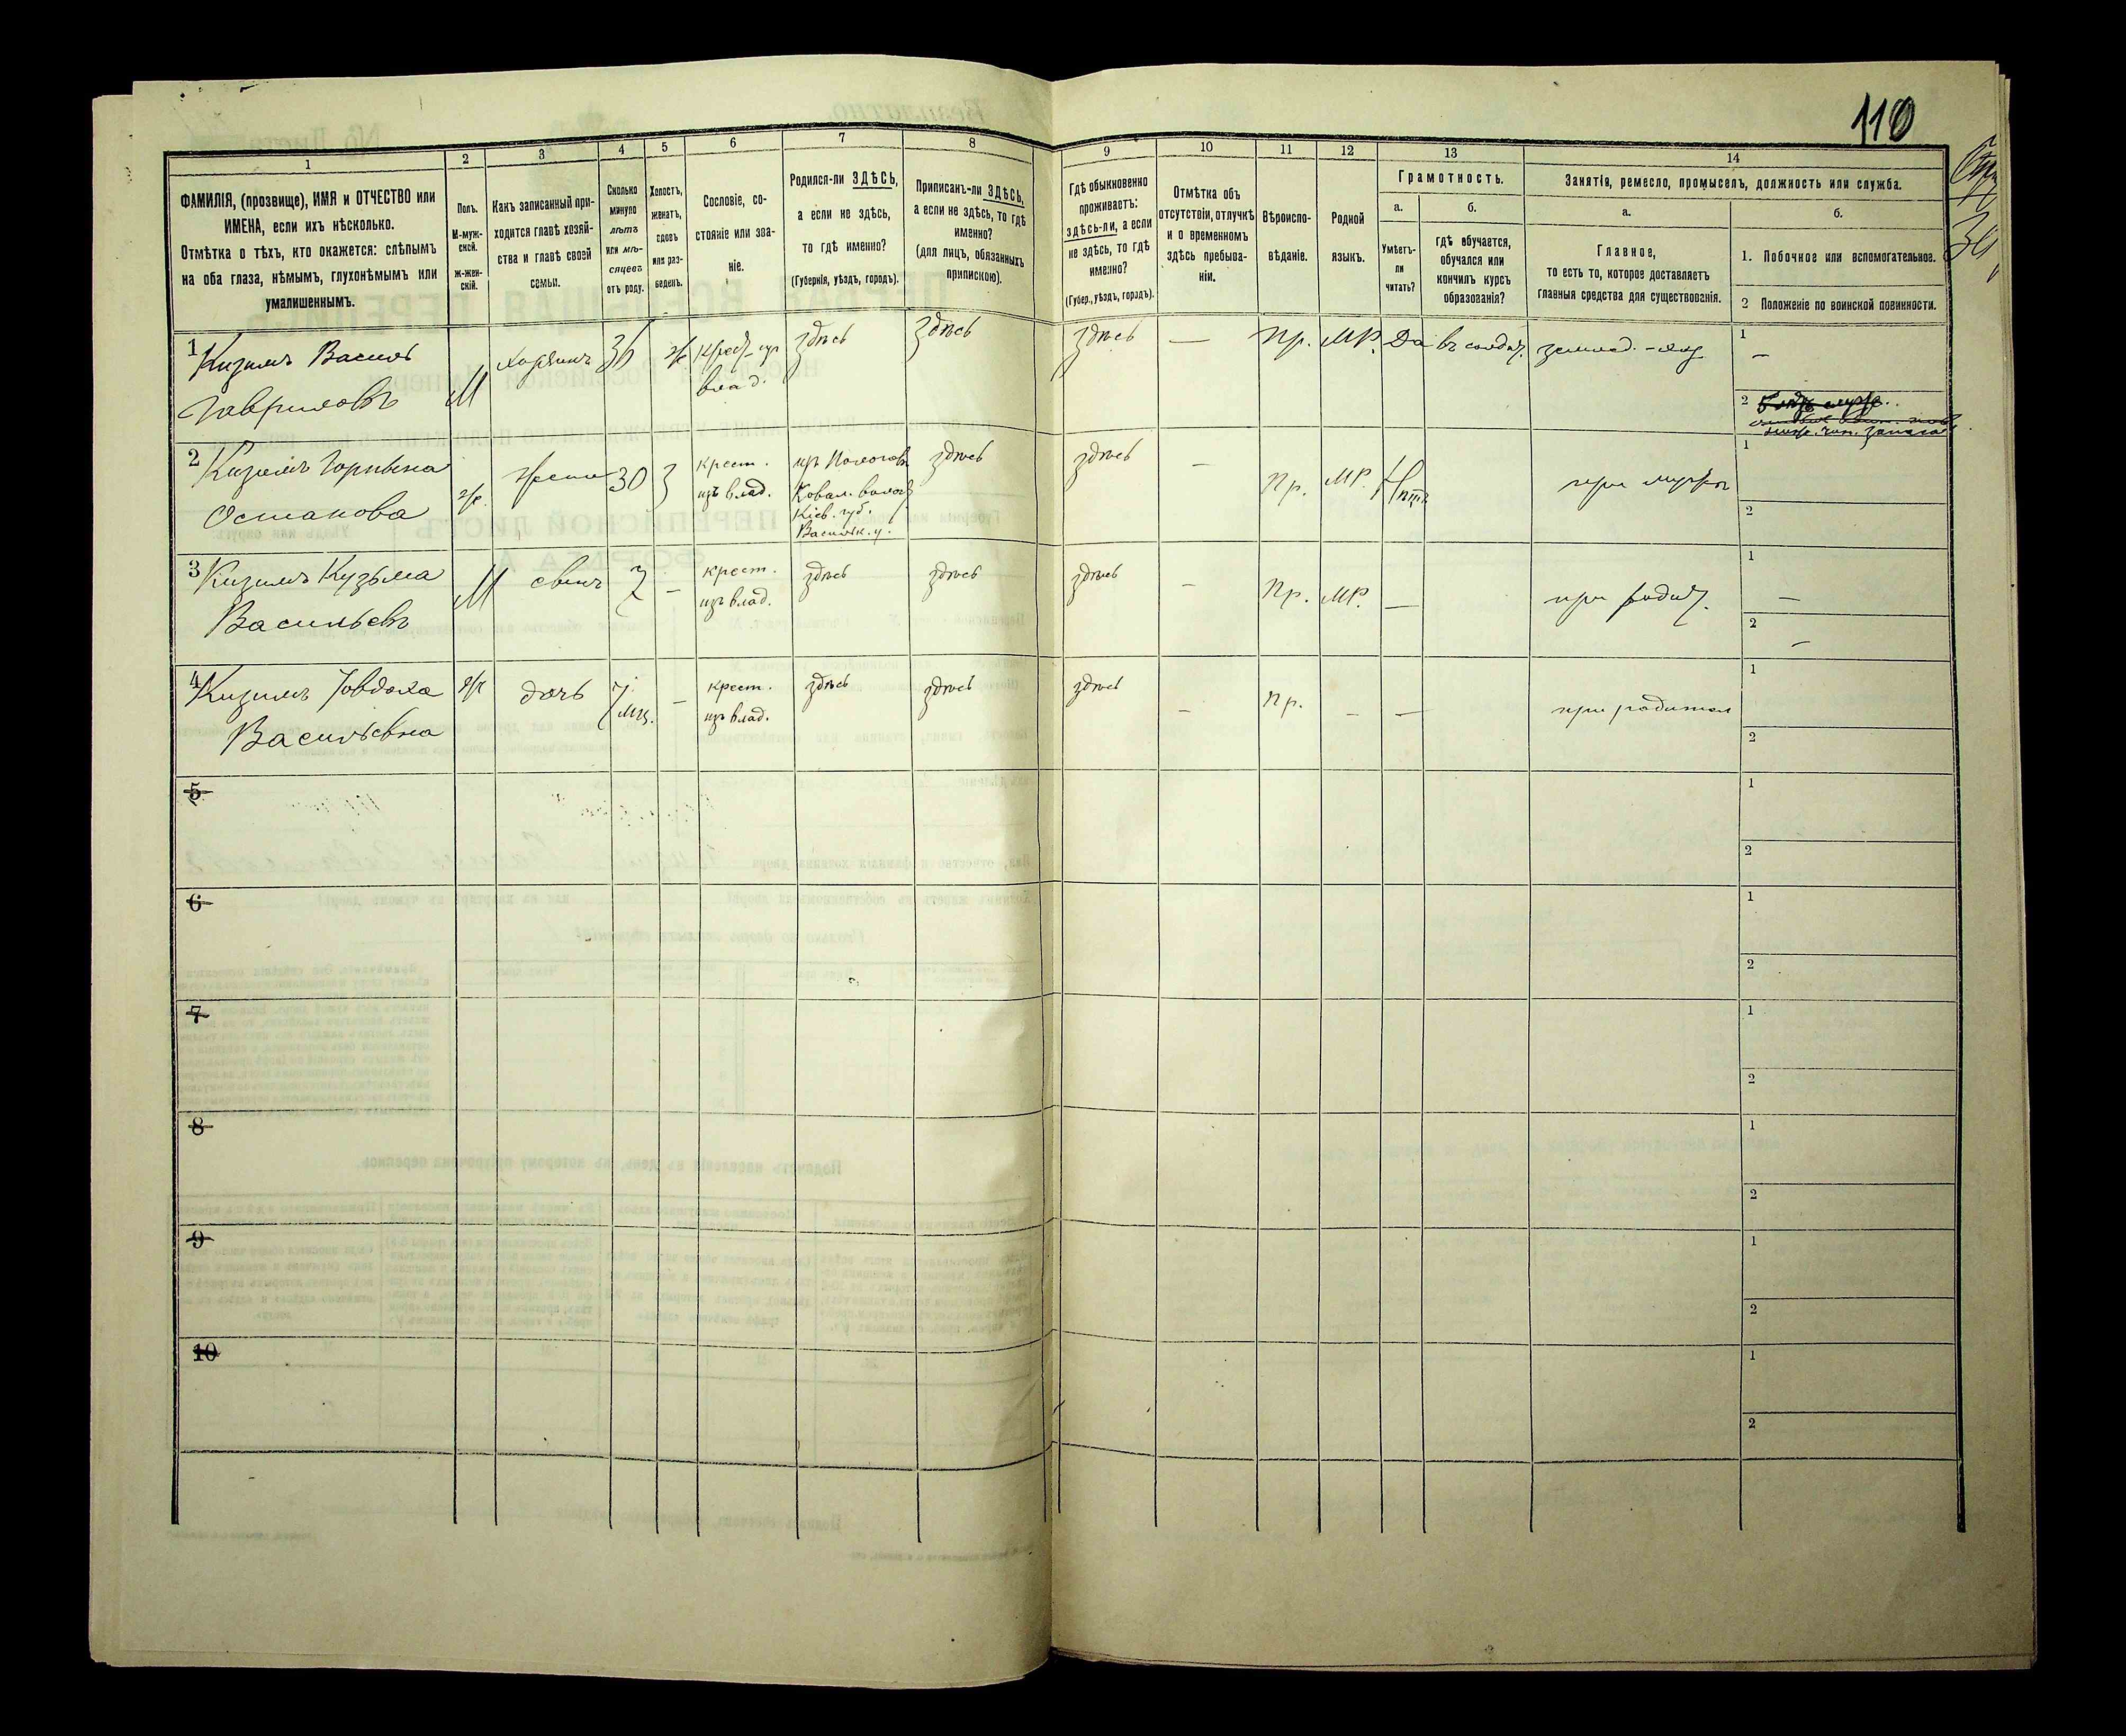 110
1
2
3
4
5
6
7
8
9
10
11
12
13
14
ФАМИЛІЯ, (прозвище), ИМЯ и ОТЧЕСТВО или
ИМЕНА, если ихъ нѣсколько.
Отмѣтка о тѣхъ, кто окажется: слѣпымъ
на оба глаза, нѣмымъ, глухонѣмымъ или
умалишеннымъ.
Полъ.
М-муж-
ской.
Ж-жен-
скій.
Какъ записанный при-
ходится главѣ хозяй-
ства и главѣ своей
семьи.
Сколько
минуло
лѣтъ
или мѣ-
сяцевъ
отъ роду.
Холостъ,
женатъ,
вдовъ
или раз-
веденъ.
Сословіе, со-
стояніе или зва-
ніе.
Родился-ли ЗДѢСЬ,
а если не здѣсь,
то гдѣ именно?
(Губернія, уѣздъ, городъ).
Приписанъ-ли ЗДѢСЬ,
а если не здѣсь, то гдѣ
именно?
(для лицъ, обязанныхъ
припискою).
Гдѣ обыкновенно
проживаетъ:
здѣсь-ли, а если
не здѣсь, то гдѣ
именно?
(Губер., уѣздъ, городъ).
Отмѣтка объ
отсутствіи, отлучкѣ
и о временномъ
здѣсь пребыва-
ніи.
Вѣроиспо-
вѣданіе.
Родной
языкъ.
Грамотность.
а.
Умѣетъ-
ли
читать?
б.
гдѣ обучается,
обучался или
кончилъ курсъ
образованія?
Занятія, ремесло, промыселъ, должность или служба.
а.
Главное,
то есть то, которое доставляетъ
главныя средства для существованія.
б.
1. Побочное или вспомогательное.
2 Положеніе по воинской повинности.
1 Кизимъ Василь
Гавриловъ
М
хозяинъ
36
ж
Крест. изъ
влад.
здѣсь
здѣсь
здѣсь
—
Пр.
МР.
Да
въ солдат.
землед.
1
—
2
2 Кизимъ Горпына
Остапова
ж.
жена
30
З
крест.
изъ влад.
Кіев. губ.
Васильк. у.
здѣсь
здѣсь
—
Пр.
МР.
Нѣтъ
при мужѣ
1
2
3 Кизимъ Кузьма
Васильевъ
М
сынъ
7
—
крест.
изъ влад.
здѣсь
здѣсь
здѣсь
—
Пр.
МР.
—
при родит.
1
—
2
—
4 Кизимъ Јовдоха
Васильевна
ж
дочь
7
мц.
—
крест.
изъ влад.
здѣсь
здѣсь
здѣсь
—
Пр.
—
—
при родител
1
2
5
1
2
6
1
2
7
1
2
8
1
2
9
1
2
10
1
2